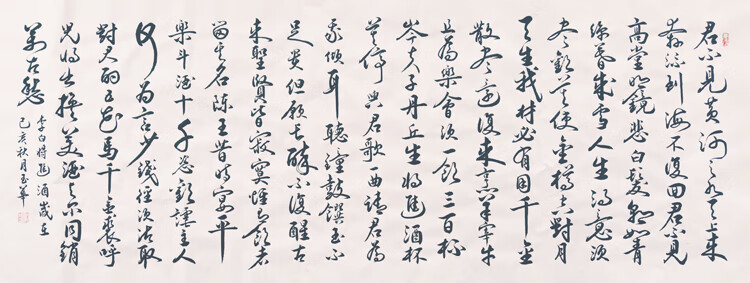 君不見黄河之水天上来
奔流到海不復回君不見
高堂明鏡悲白髮朝如青
絲暮成雪人生得意須
盡歡莫使金樽空對月
天生我材必有用千金
散盡還復来烹羊宰牛
且為樂會須一飲三百杯
岑夫子丹丘生將進酒杯
莫停與君歌一曲請君為
我傾耳聽鐘鼓饌玉不
足貴但願長醉不復醒古
来聖賢皆寂寞惟有飲者
留其名陳王昔時宴平
樂斗酒十千恣歡謔主人
何為言少錢徑須沽取
對君酌五花馬千金裘呼
兒將出換美酒與尔同銷
萬古愁
李白將進酒歲在
己亥秋月玉華